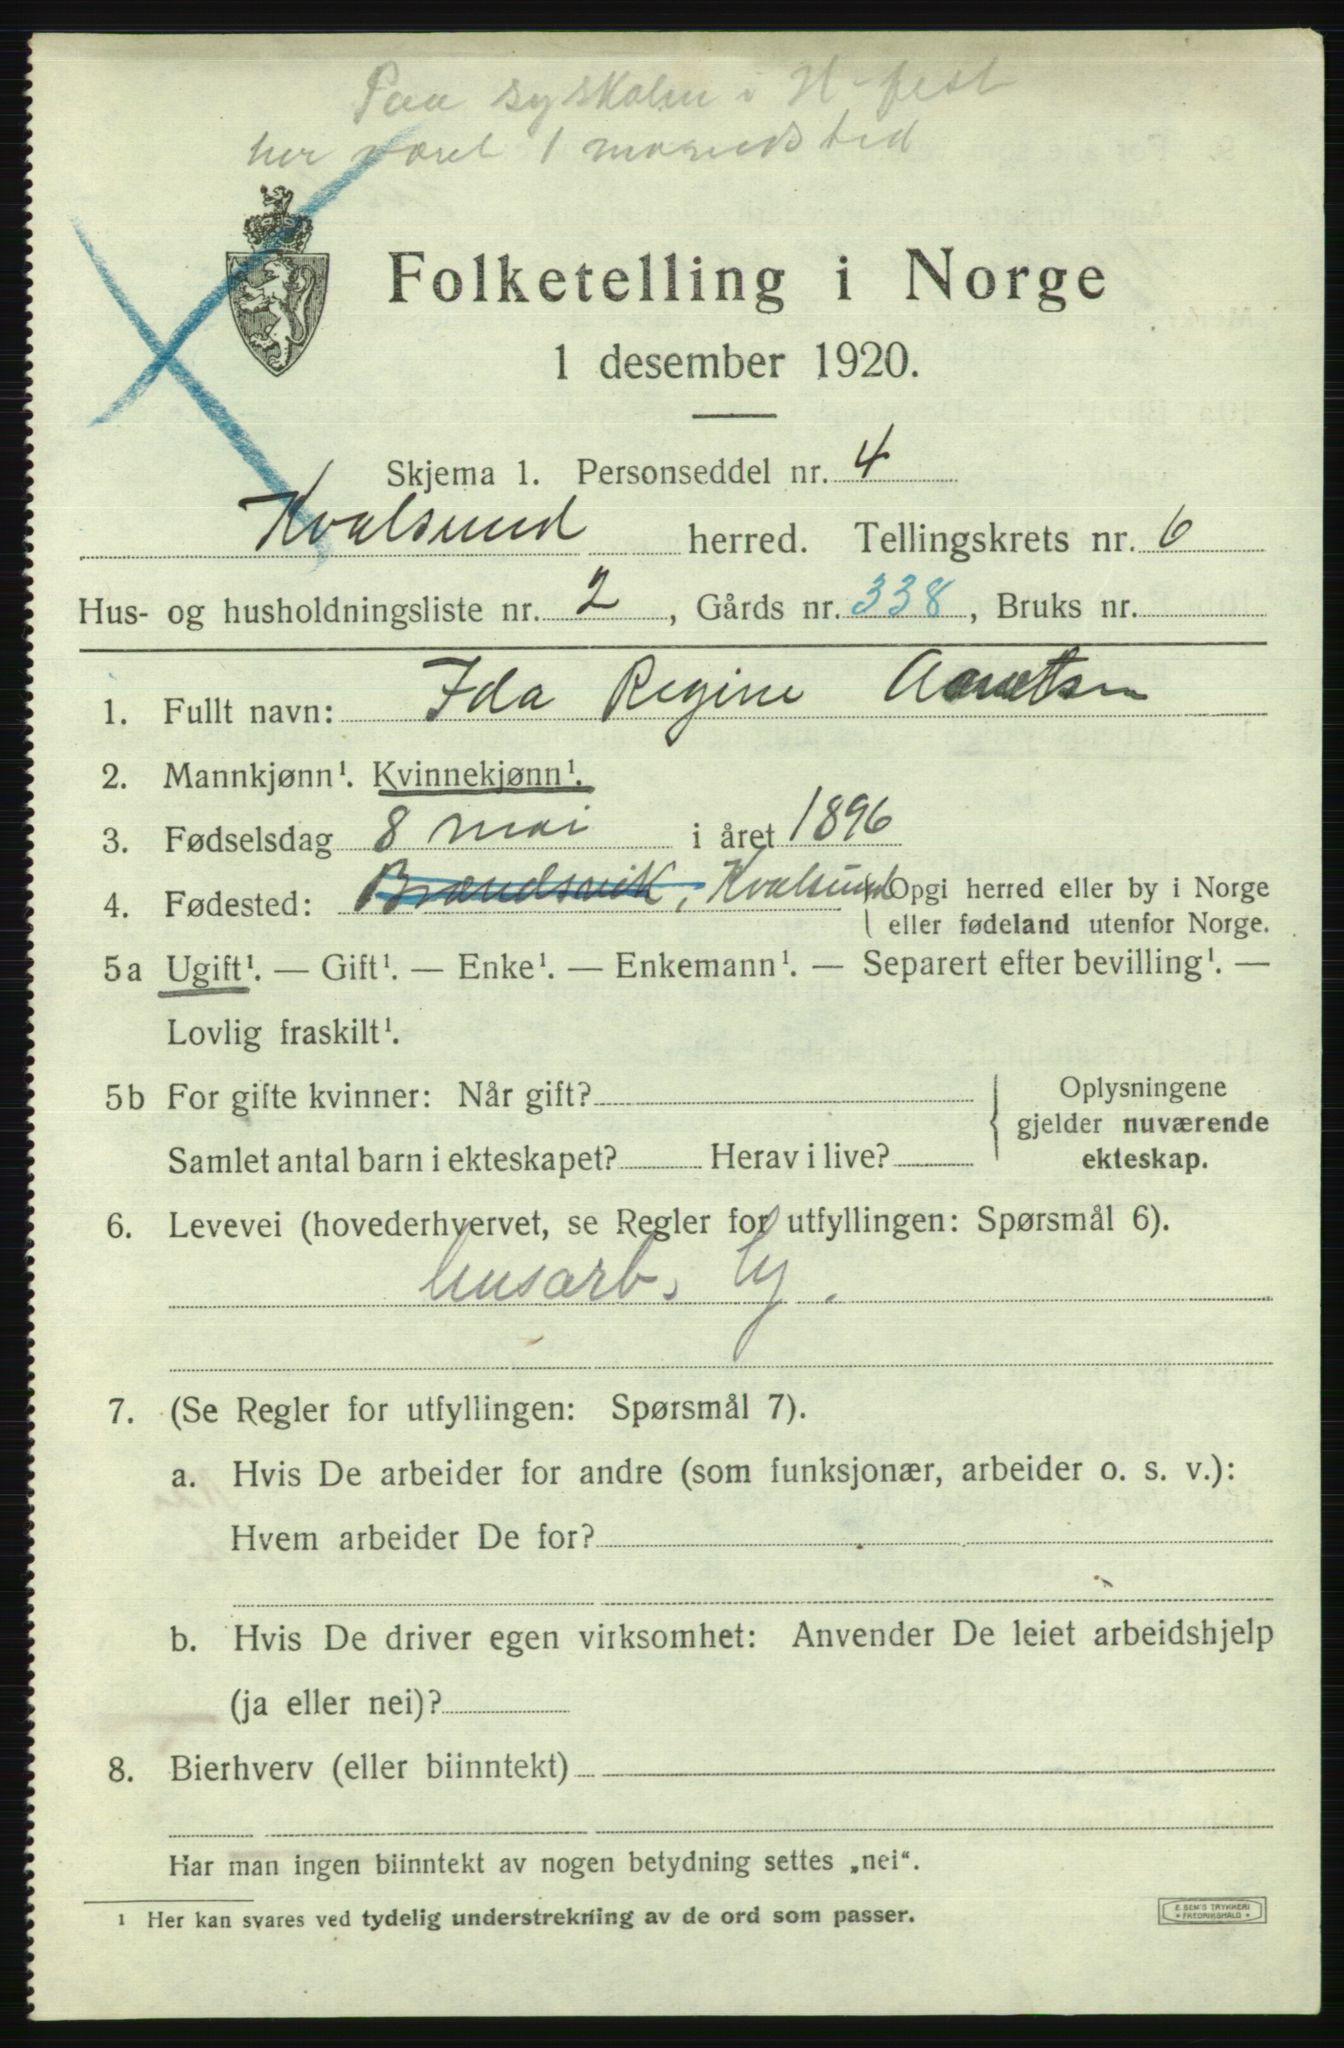 Paa syskolen i H-fest
her været 1 maaneds tid
Folketelling i Norge
1 desember 1920.
Skjema 1. Personseddel nr. 4
Kvalsund herred. Tellingskrets nr. 6
Hus- og husholdningsliste nr. 2, Gårds nr. 338, Bruks nr.
1. Fullt navn: Ida Regine
2. Mannkjønn¹. Kvinnekjønn¹.
3. Fødselsdag 8 mai i året 1896
4. Fødested: Brændsvik, Kvalsund
Opgi herred eller by i Norge
eller fødeland utenfor Norge.
5a Ugift¹. — Gift¹. — Enke¹. — Enkemann¹. — Separert efter bevilling¹. —
Lovlig fraskilt¹.
5b For gifte kvinner: Når gift?
Samlet antal barn i ekteskapet? Herav i live?
Oplysningene
gjelder nuværende
ekteskap.
6. Levevei (hovederhvervet, se Regler for utfyllingen: Spørsmål 6).
husarb.
7. (Se Regler for utfyllingen: Spørsmål 7).
a. Hvis De arbeider for andre (som funksjonær, arbeider o. s. v.):
Hvem arbeider De for?
b. Hvis De driver egen virksomhet: Anvender De leiet arbeidshjelp
(ja eller nei)?
8. Bierhverv (eller biinntekt)
Har man ingen biinntekt av nogen betydning settes „nei“.
¹ Her kan svares ved tydelig understrekning av de ord som passer.
E. SEM'S TRYKKERI
* FREDRIKSHALD *